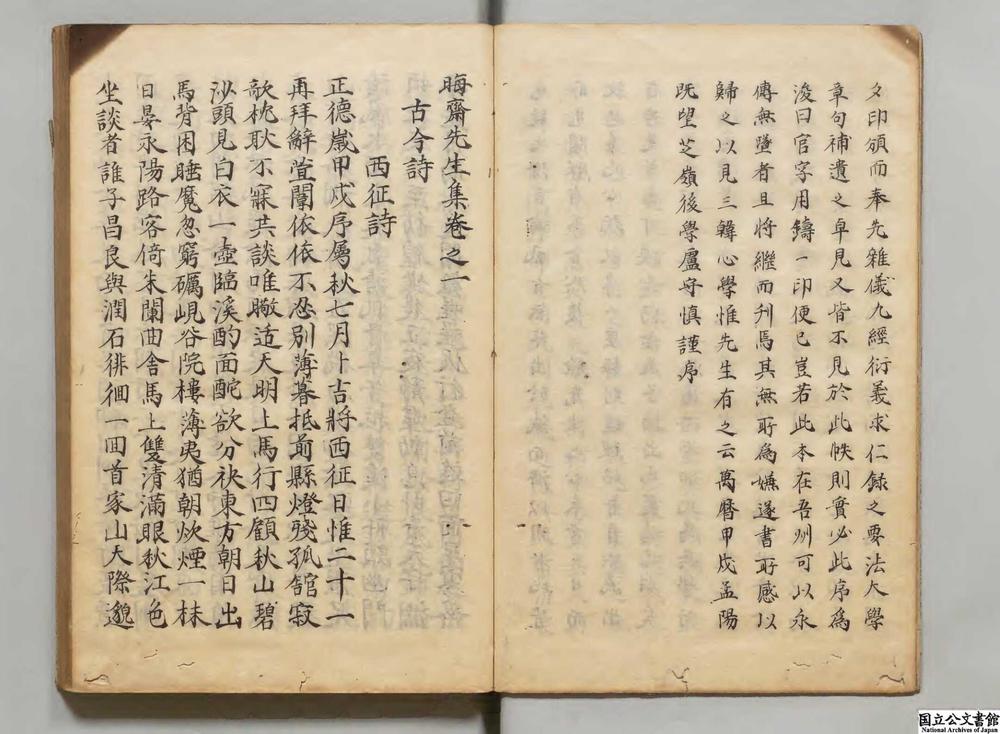 夕印頒而奉先雜儀九經衍義求仁錄之要法大學
章句補遺之卓見又皆不見於此帙則實必此序為
後曰官字用鑄一印便已豈若此本在吾州可以永
傳無墜者且將繼而刊焉其無所為嫌遂書所感以
歸之以見三韓心學惟先生有之云萬曆甲戌孟陽
既望芝嶺後學盧守慎謹序
晦齋先生集卷之一
古今詩
西征詩
正德歲甲戌序屬秋七月卜吉將西征日惟二十一
再拜辭萱闈依依不忍別薄暮抵前縣燈殘孤館寂
欹枕耿不寐共談唯暾适天明上馬行四顧秋山碧
沙頭見白衣一壺臨溪酌面酡欲分袂東方朝日出
馬背困睡魔忽窮礪峴谷院樓薄夷猶朝炊煙一抹
日晏永陽路客倚朱闌曲舍馬上雙清滿眼秋江色
坐談者誰子昌良與潤石徘徊一回首家山大際邈
国立公文書館
National Archives of Japan